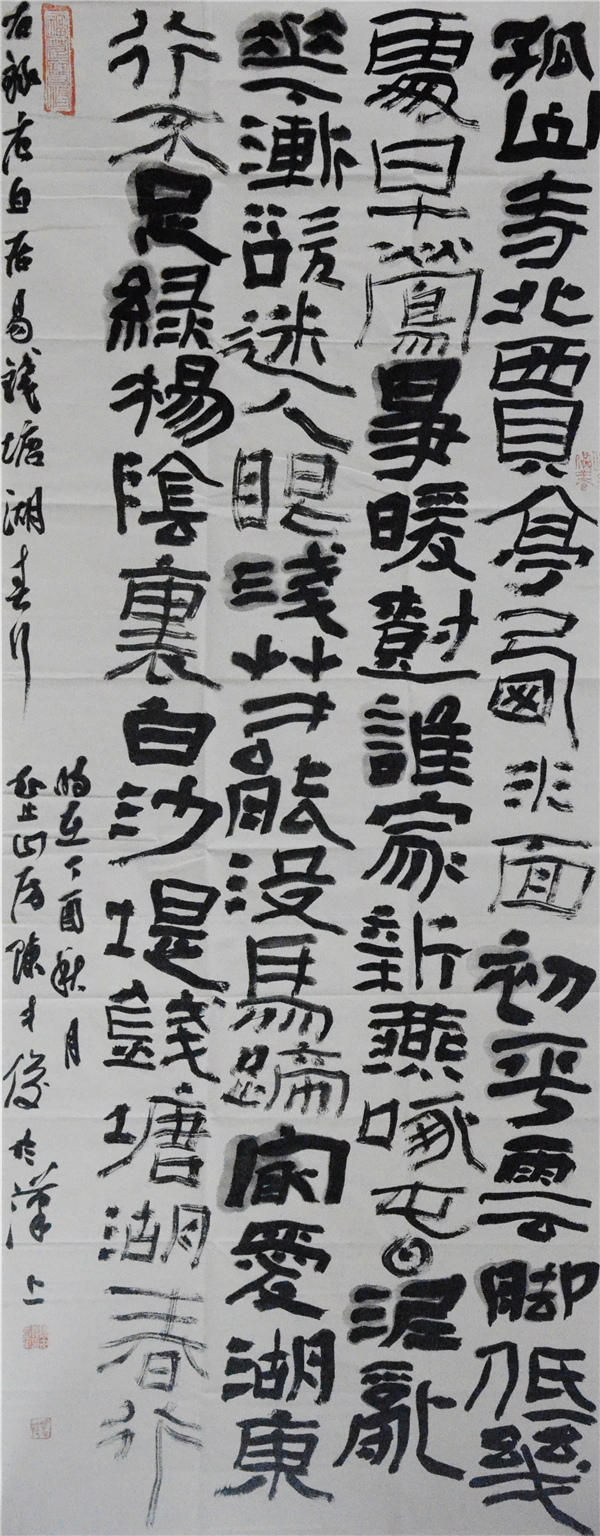 孤山寺北賈亭西水面初平雲脚低幾
處早鶯爭暖樹誰家新燕啄春泥亂
華漸欲迷人眼淺艸才能没馬蹄最愛湖東
行不足綠楊陰裏白沙堤錢塘湖春行
右錄唐白居易錢塘湖春行
時在丁酉秋月
止山房陳才俊於漢上